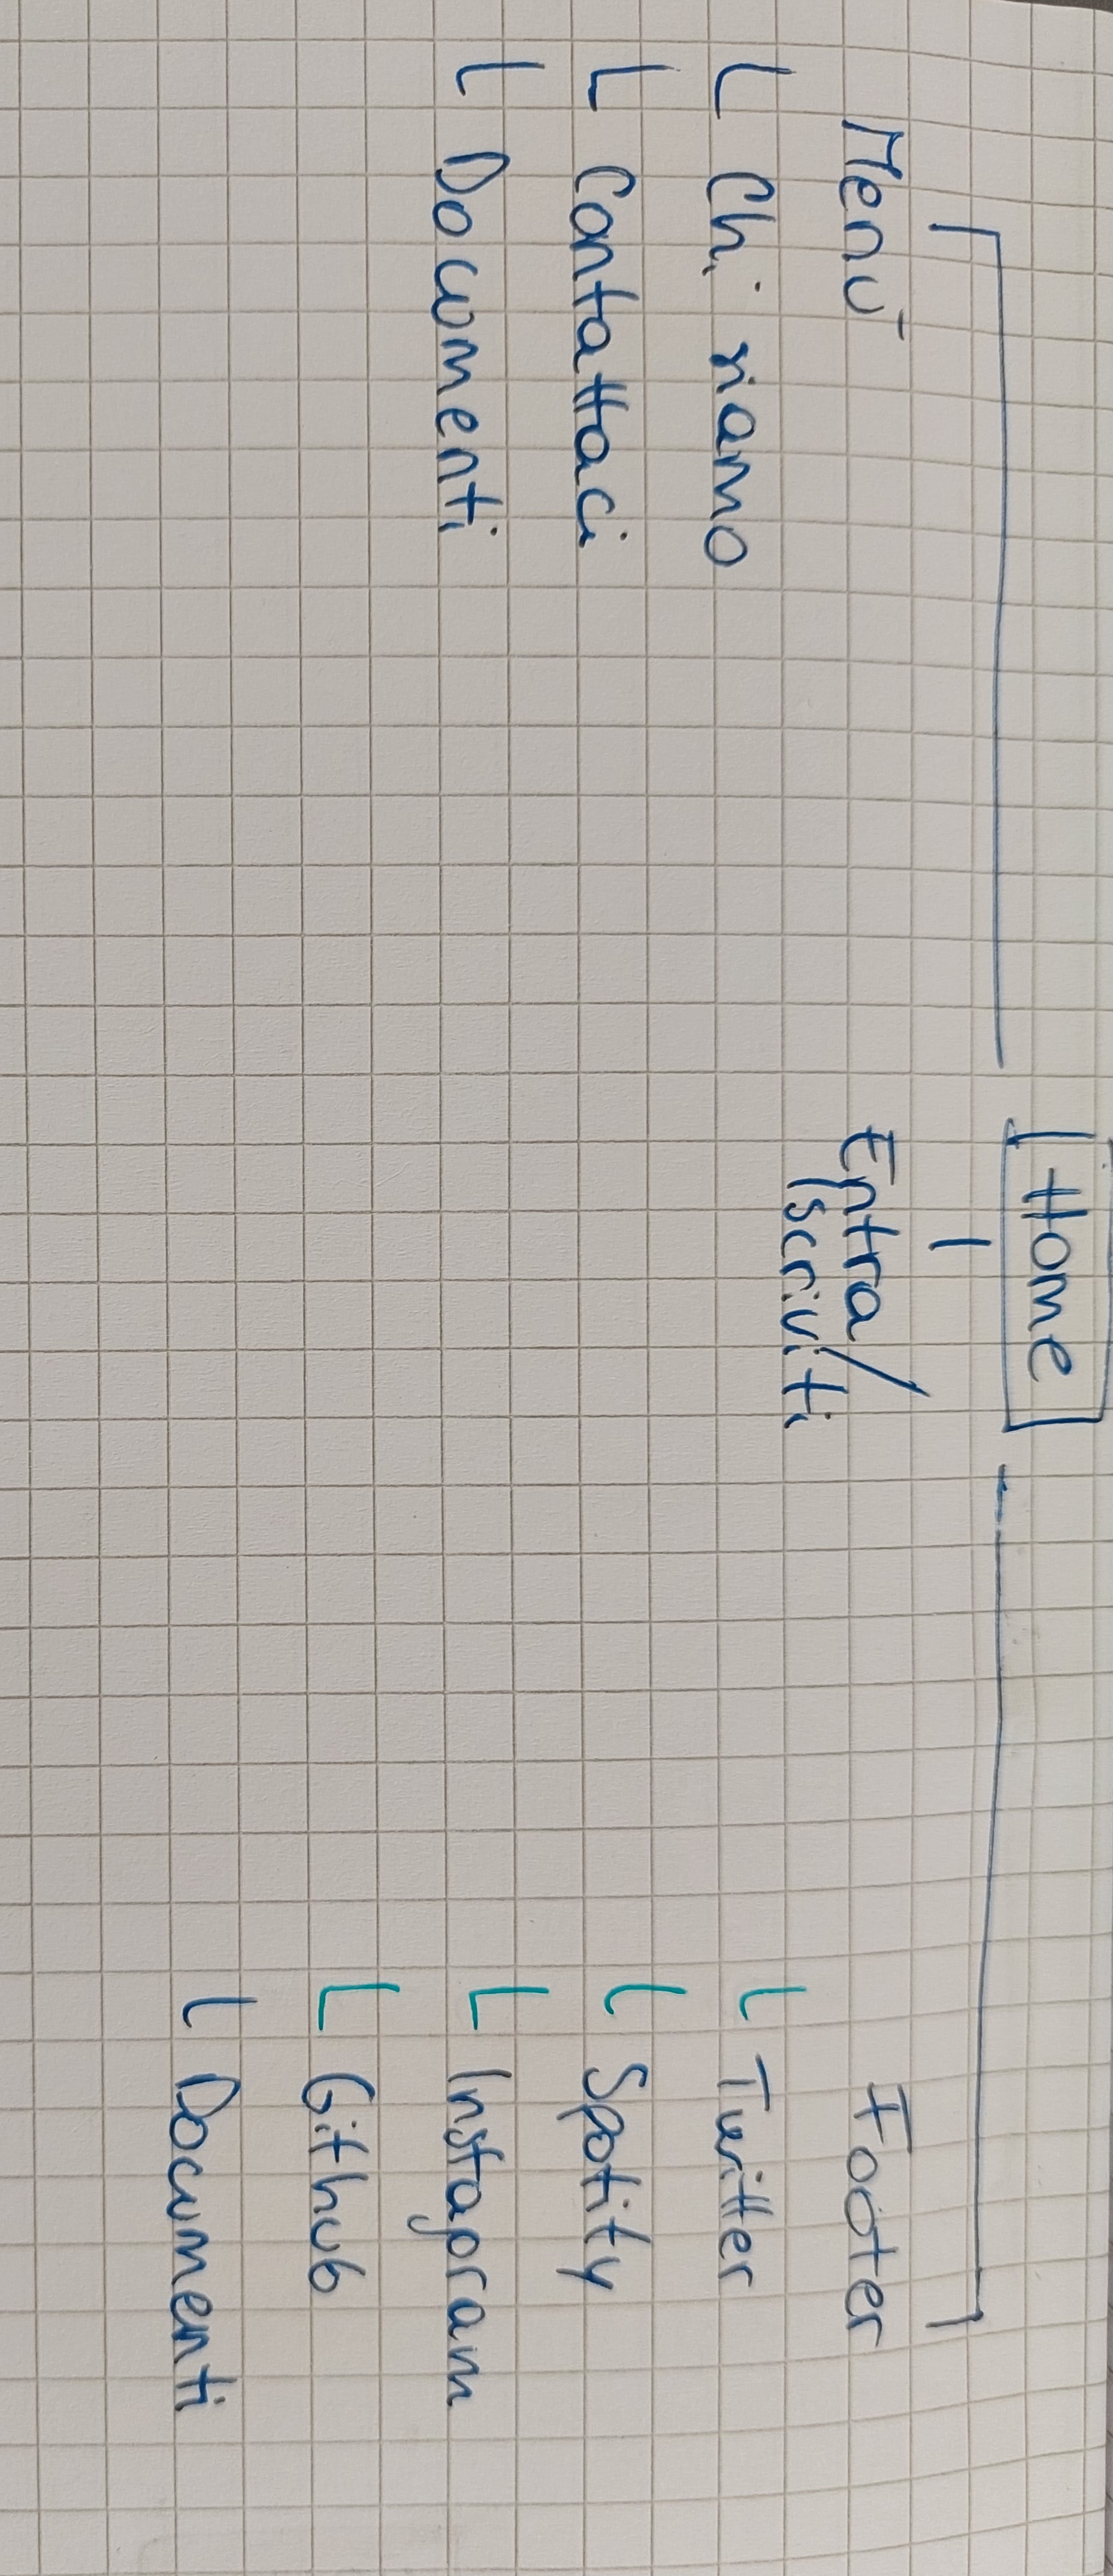 Home
Menù
Chi siamo
Contattaci
Documenti
Entra/
Iscriviti
Footer
Twitter
Spotify
Instagram
Github
Documenti